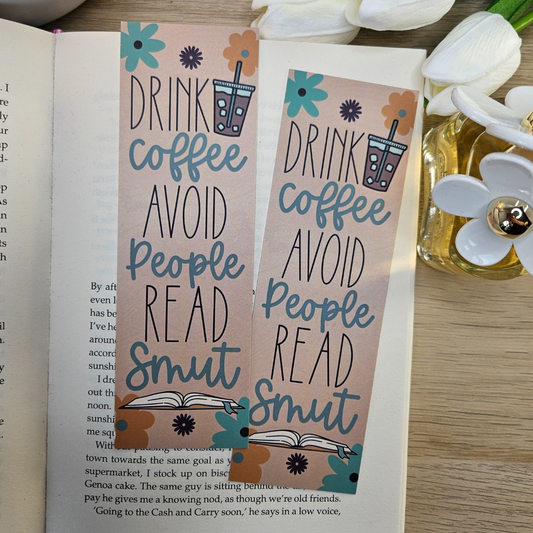 DRINK
coffee
AVOID
People
READ
Smut
DRINK
coffee
AVOID
People
READ
Smut
By aft
even l
has be
I've he
around
accord
sunshi
I dre
out th
noon.
sunshi
me squ
With pausing to consider, I
town towards the same goal as y
supermarket, I stock up on bisc
Genoa cake. The same guy is sitting behind the
pay he gives me a knowing nod, as though we're old friends.
'Going to the Cash and Carry soon,' he says in a low voice,